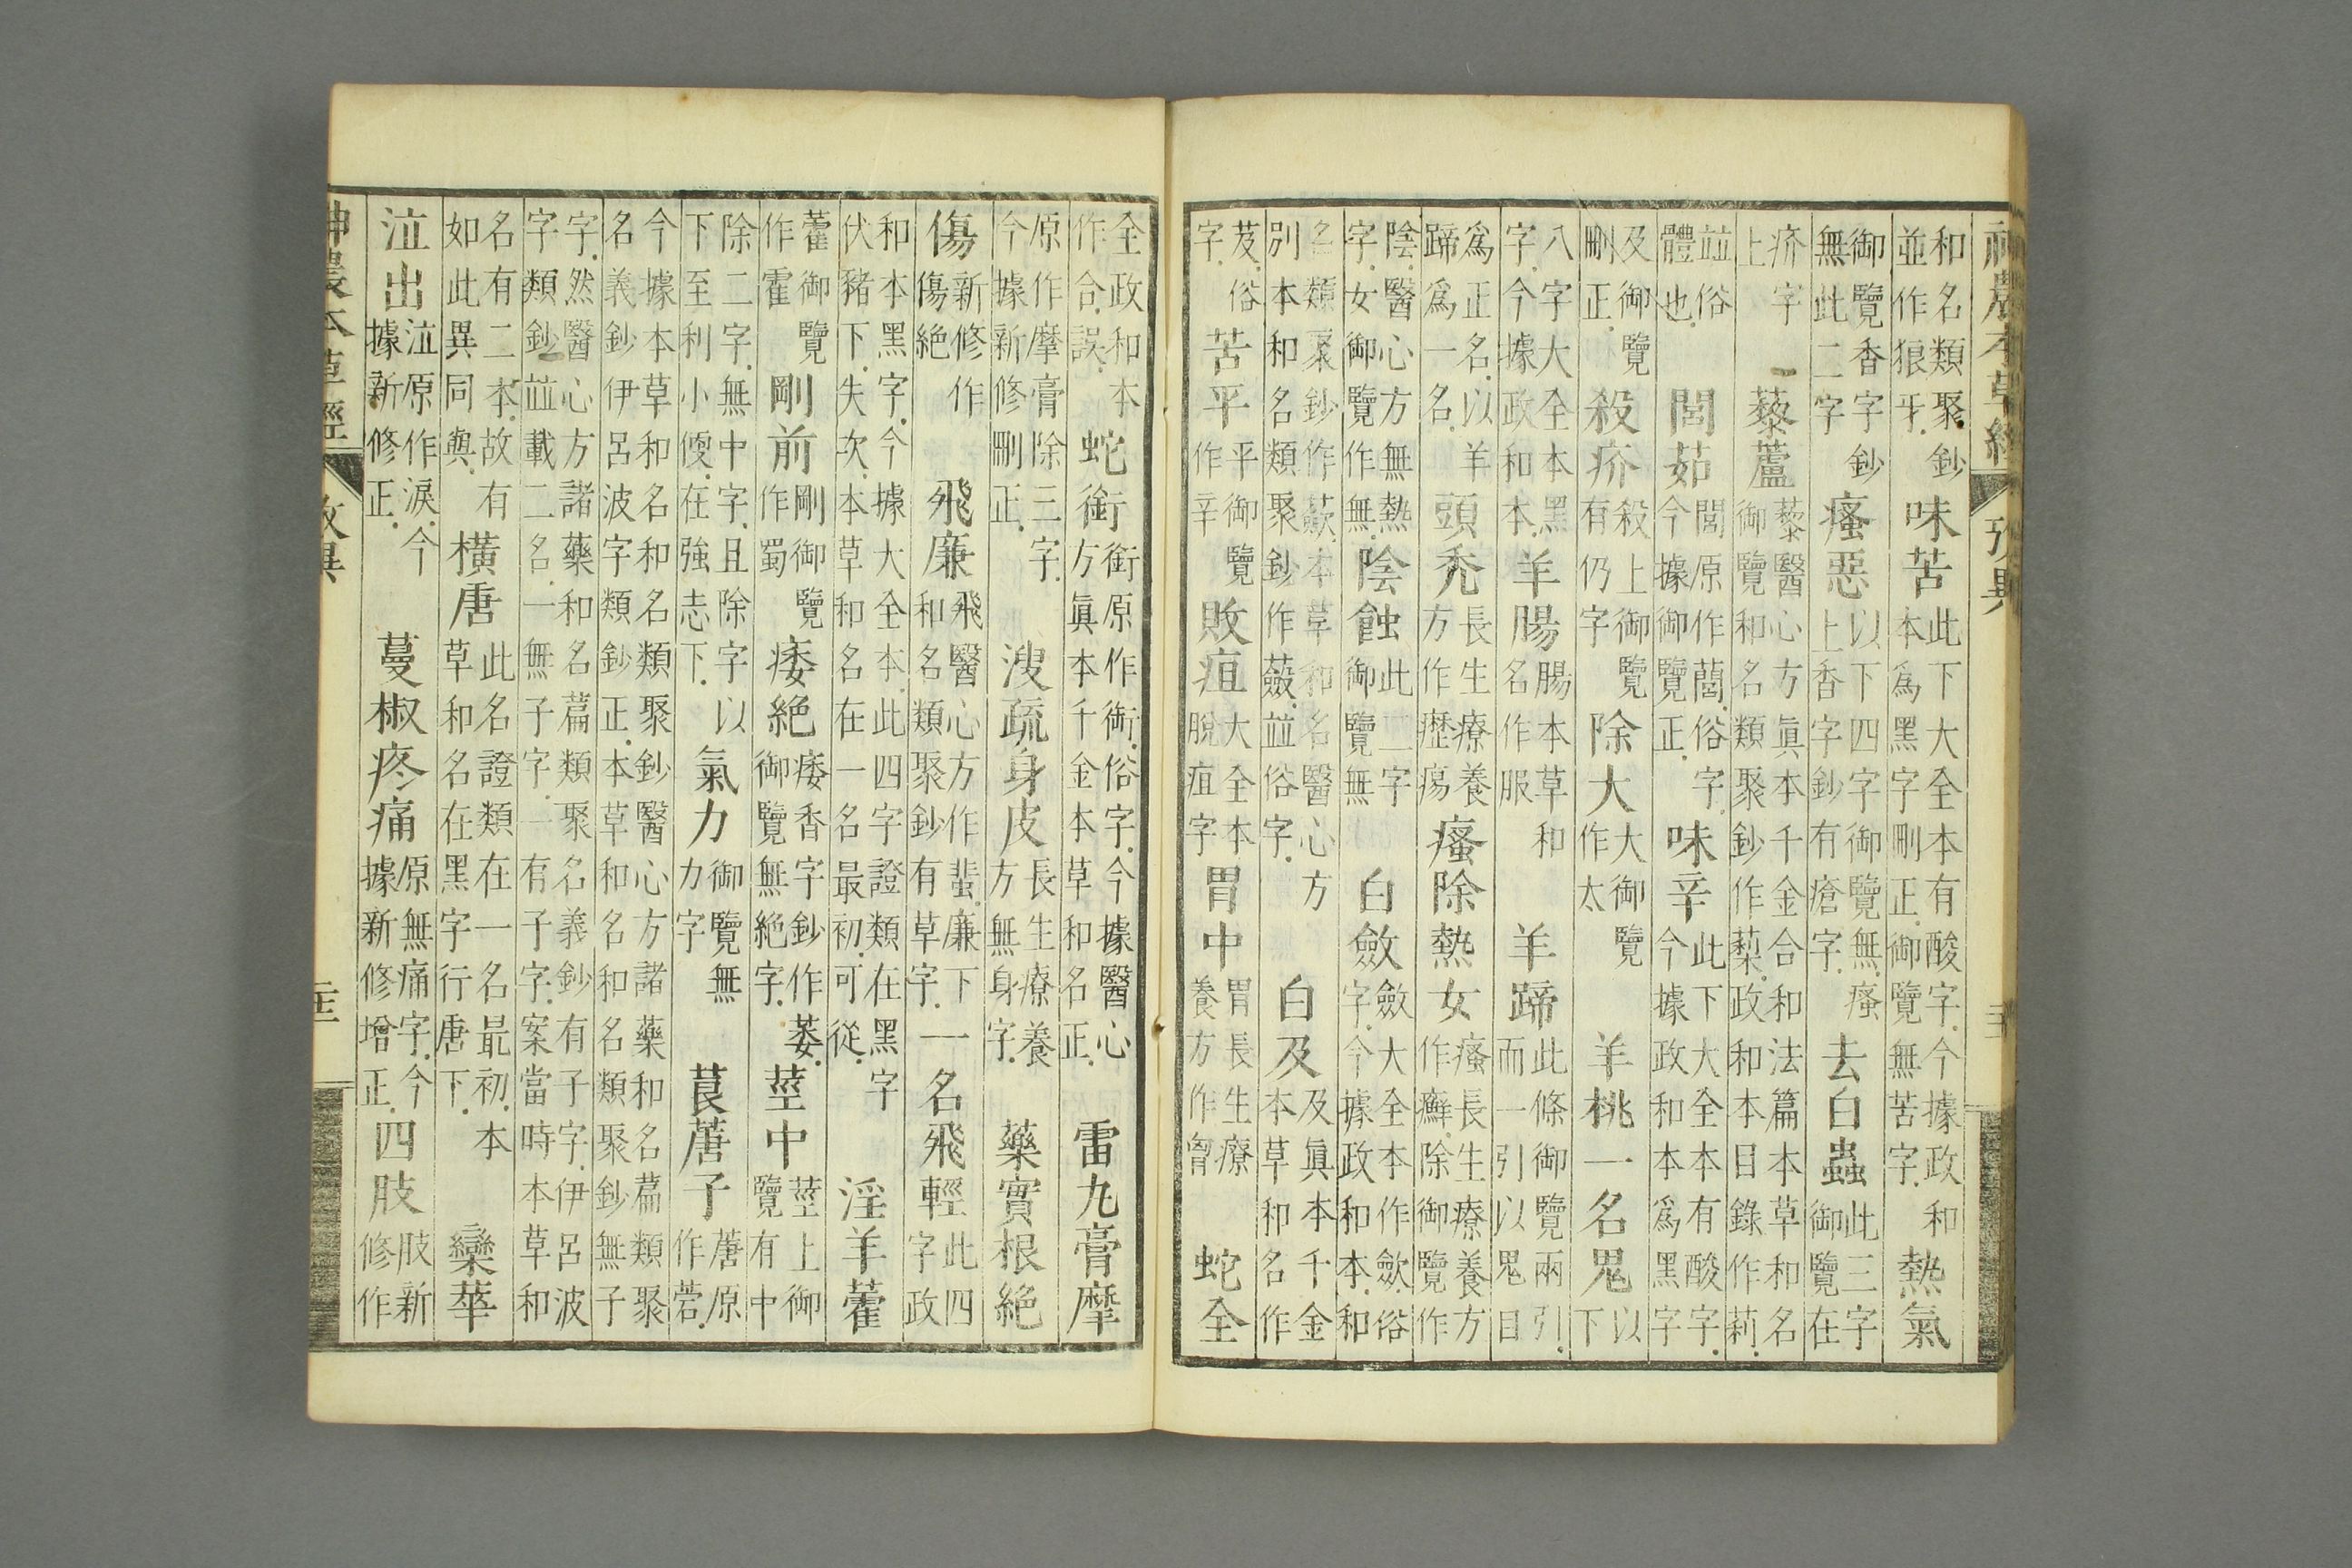 神農本草經 攷異
和名類聚鈔
並作狼乎.
味苦
此下大全本有酸字.今據政和
本爲黑字刪正.御覽無苦字.
熱氣
御覽香字鈔
無此二字
瘙惡
以下四字御覽無.瘙
上香字鈔有瘡字.
去白蟲
此三字
御覽在
疥字
上
藜蘆
藜醫心方眞本千金合和法篇本草和名
御覽和名類聚鈔作蔾.政和本目錄作莉.
並俗
體也.
閭茹
閭原作䕡.俗字.
今據御覽正.
味辛
此下大全本有酸字.
今據政和本爲黑字
及御覽
刪正.
殺疥
殺上御覽
有仍字
除大
大御覽
作太
羊桃一名鬼
以
下
八字大全本黑
字.今據政和本.
羊腸
腸本草和
名作服
羊蹄
此條御覽兩引.
而一引以鬼目
爲正名.以羊
蹄爲一名.
頭禿
長生療養
方作瘞瘍
瘙除熱女
瘙長生療養方
作癬.除御覽作
陰.醫心方無熱
字.女御覽作無.
陰蝕
此二字
御覽無
白斂
斂大全本作歛.俗
字.今據政和本.和
名類聚鈔作蘞.本草和名醫心方
別本和名類聚鈔作蘝.並俗字.
白及
及眞本千金
本草和名作
芨.俗
字.
苦平
平御覽
作辛
敗疽
大全本
脫疽字
胃中
胃長生療
養方作
蛇全
全政和本
作合.誤.
蛇銜
銜原作衘.俗字.今據醫心
方眞本千金本草和名正.
雷丸膏摩
原作摩膏除三字.
今據新修刪正.
溲疏身皮
長生療養
方無身字.
藥實根絕
傷
新修作
傷絕
飛廉
飛醫心方作蜚.廉下
和名類聚鈔有草字.
一名飛輕
此四
字政
和本黑字.今據大全本.此四字證類在黑字
伏豬下.失次.本草和名在一名最初.可從.
淫羊藿
藿御覽
作霍
剛前
剛御覽
作蜀
痿絕
痿香字鈔作萎.
御覽無絕字.
莖中
莖上御
覽有中
除二字.無中字.且除字以
下至利小便.在強志下.
氣力
御覽無
力字
莨蓎子
蓎原
作菪.
今據本草和名和名類聚鈔醫心方諸藥和名篇類聚
名義鈔伊呂波字類鈔正.本草和名和名類聚鈔無子
字.然醫心方諸藥和名篇類聚名義鈔有子字.伊呂波
字類鈔並載二名.一無子字.一有子字.案當時本草和
名有二本.故有
如此異同與.
橫唐
此名證類在一名最初.本
草和名在黑字行唐下.
欒華
泣出
泣原作淚.今
據新修正.
蔓椒疼痛
原無痛字.今
據新修增正.
四肢
肢新
修作
神農本草經 攷異